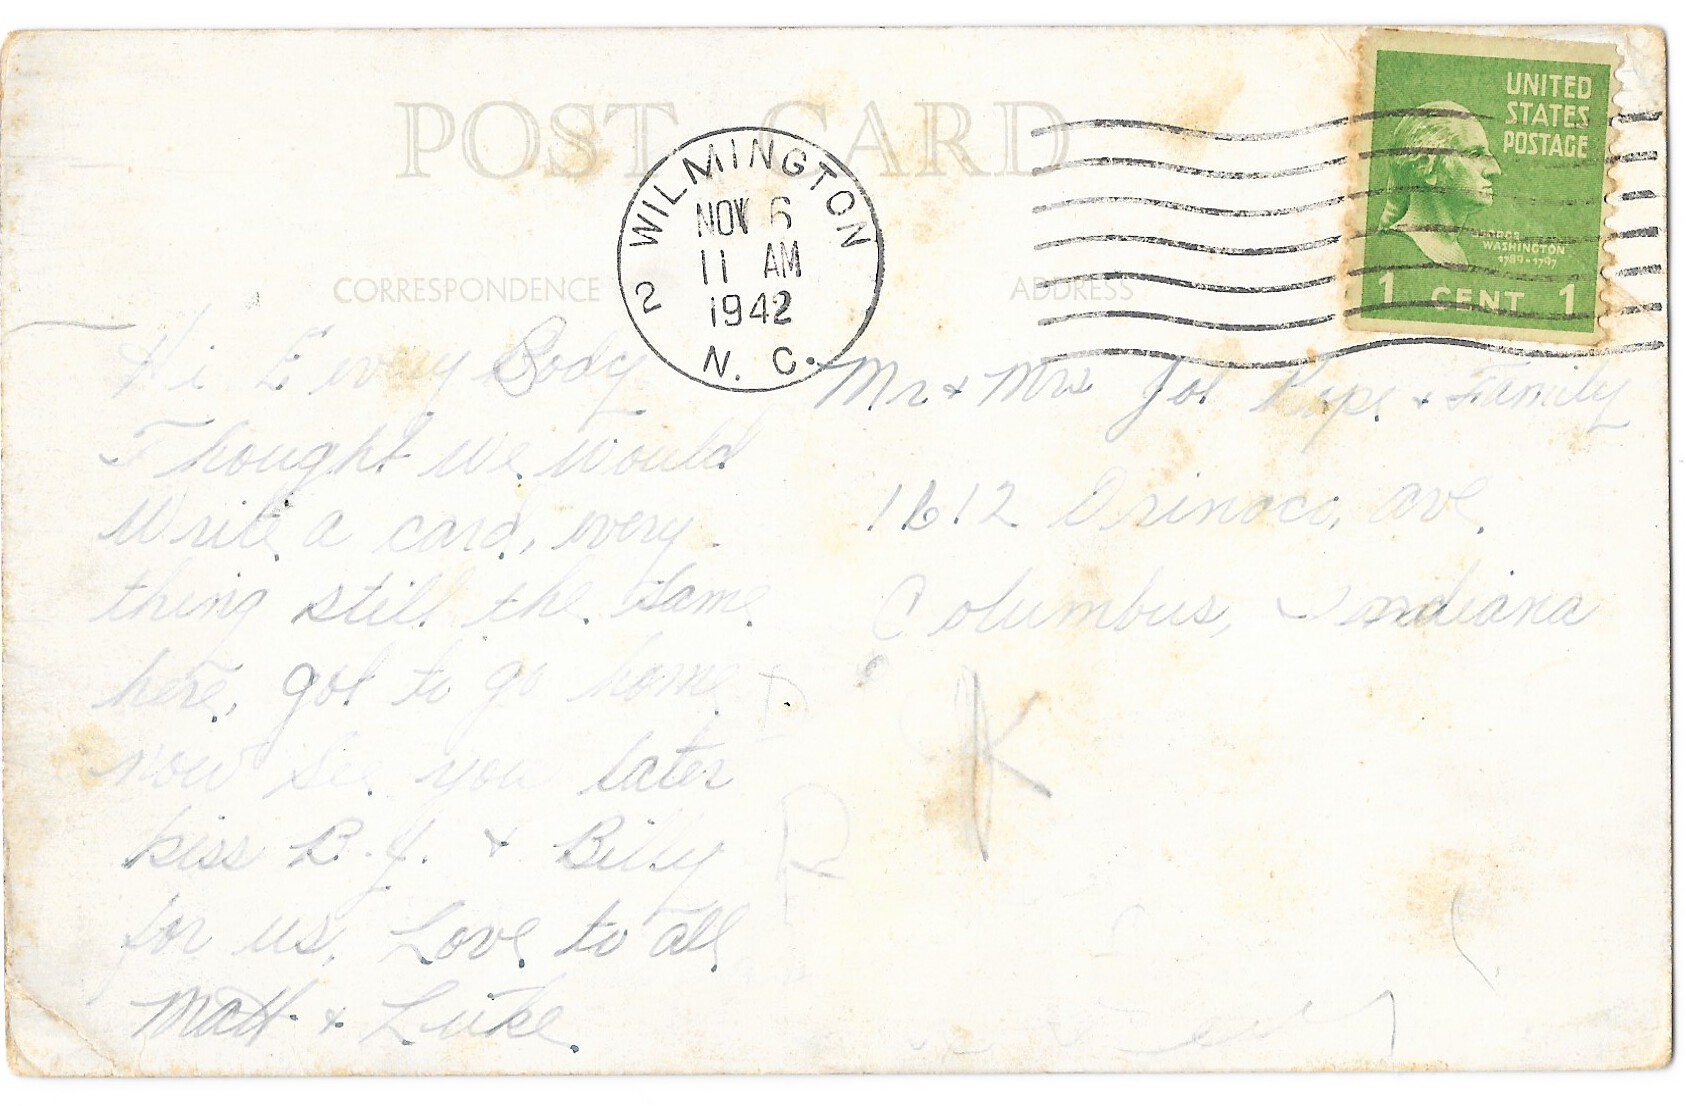 POST CARD
2 WILMINGTON N. C.
NOV 6
11 AM
1942
UNITED
STATES
POSTAGE
GEORGE
WASHINGTON
1789-1797
1 CENT 1
CORRESPONDENCE
ADDRESS
Hi Every Body
Thought we would
Write a card, every-
thing still the same
here, got to go home
now see you later
kiss B. J. + Billy
for us, Love to all
Matt + Luke
Mr + Mrs Joe + Family
1612 Orinoco, ave,
Columbus, Indiana
K
R